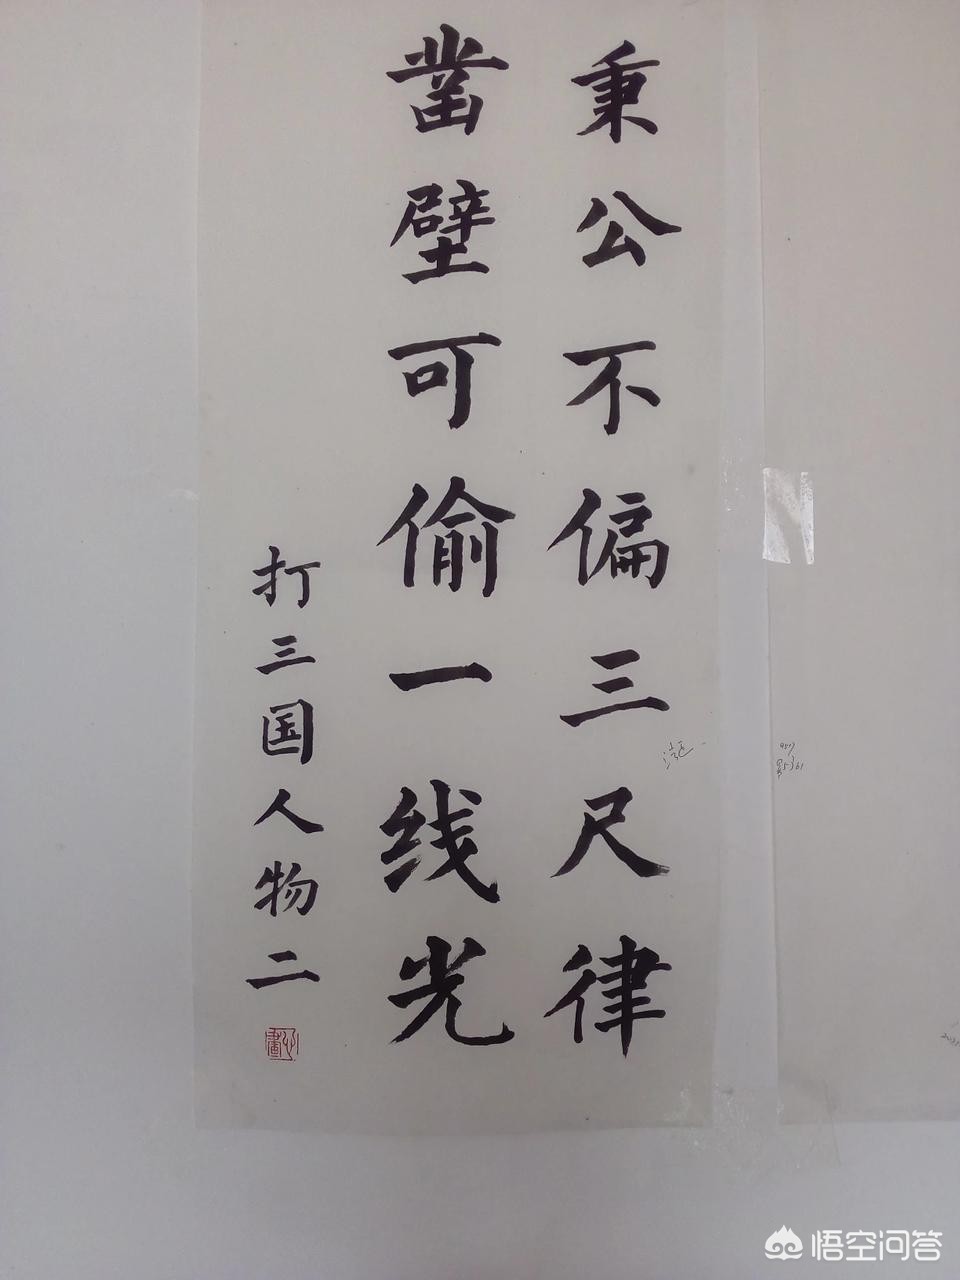 秉公不偏三尺律
凿壁可偷一线光
打三国人物二
悟空问答